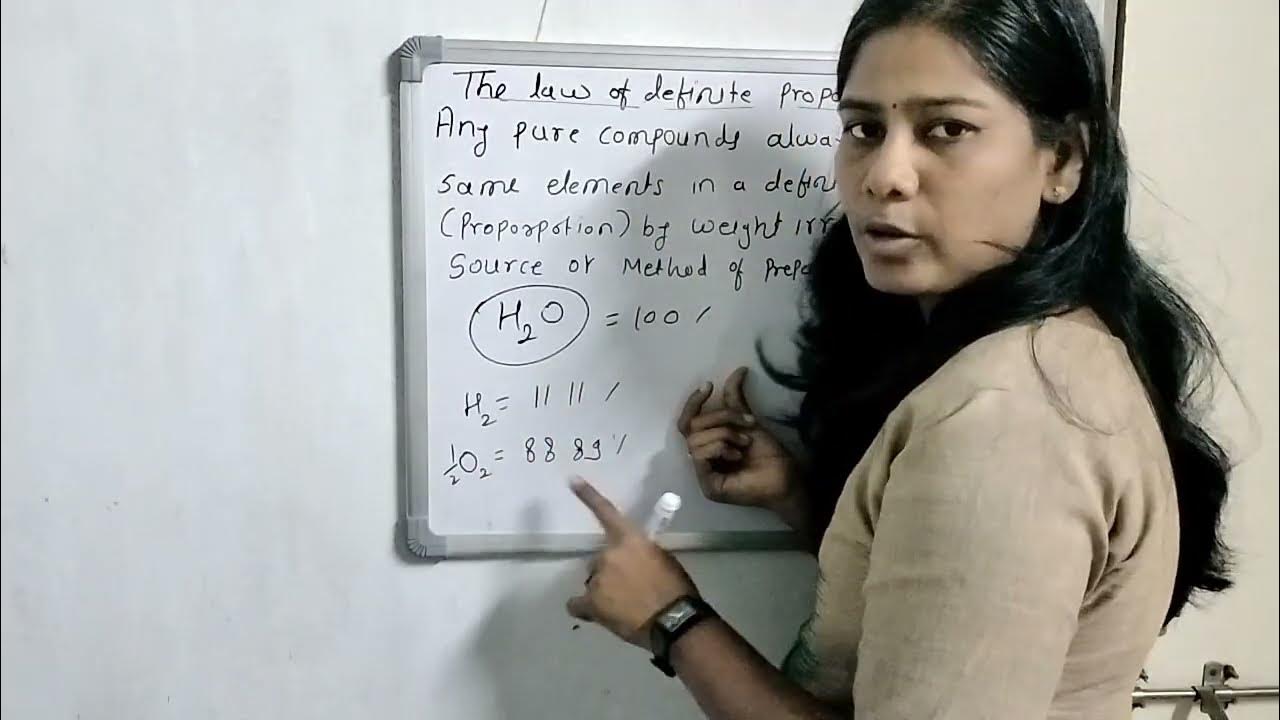 The law of definite propo
Any pure compounds alwa
same elements in a defin
(Proporpotion) by weight irr
Source or Method of Prepa
H₂O = 100 /
H₂ = 11 11 /
1/2 O₂ = 88 89 %